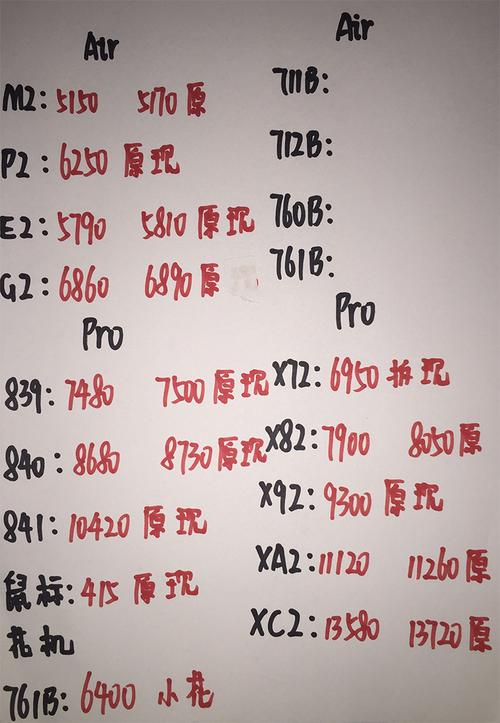 Air
M2: 5150 5170 原
P2: 6250 原现
E2: 5790 5810 原现
G2: 6860 6890 原
Pro
839: 7480 7500 原现
840: 8680 8730 原现
841: 10420 原现
鼠标: 415 原现
花机
761B: 6400 小花
Air
711B:
712B:
760B:
761B:
Pro
X72: 6950 拆现
X82: 7900 8050 原
X92: 9300 原现
XA2: 11120 11260 原
XC2: 13580 13720 原